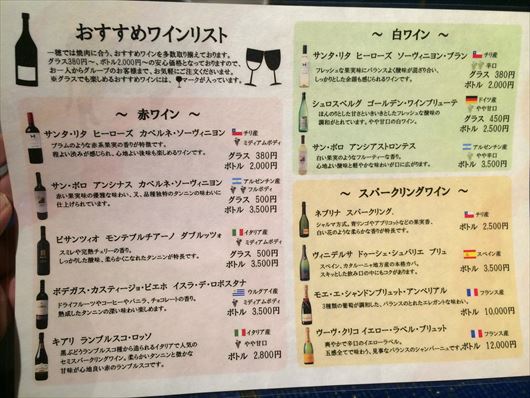 おすすめワインリスト
一穂では焼肉に合う、おすすめワインを多数取り揃えております。
グラス380円～、ボトル2,000円～の安心価格となっておりますので、
お一人からグループのお客様まで、お気軽にご注文くださいませ。
※グラスでも楽しめるおすすめワインには、マークが入っています。
～ 赤ワイン ～
サンタ・リタ ヒーローズ カベルネ・ソーヴィニヨン
チリ産
プラムのような赤系果実の香りが特徴です。
程よい渋みが感じられ、心地よい後味も楽しめるワインです。
ミディアムボディ
グラス 380円
ボトル 2,000円
サン・ボロ アンシナス カベルネ・ソーヴィニヨン
アルゼンチン産
赤い果実味の優雅な味わい、又、品種独特のタンニンの味わいに
仕上げられています。
フルボディ
グラス 500円
ボトル 3,500円
ビサンツィオ モンテプルチアーノ ダブルッツォ
イタリア産
スミレや完熟チェリーの香り。
しっかりした酸味、柔らかくになれたタンニンが特長です。
ミディアムボディ
グラス 500円
ボトル 3,500円
ボデガス・カスティージョ・ビエホ イスラ・デ・ロボスタナ
ウルグアイ産
ドライフルーツやコーヒーやバニラ、チョコレートの香り。
熟成したタンニンの深い味わい楽しめます。
ミディアムボディ
ボトル 3,500円
キアリ ランブルスコ・ロッソ
イタリア産
黒ぶどうランブルスコ種から造られるイタリアで人気の
セミスパークリングワイン。柔らかいタンニンと微かな
甘味が心地良い赤のランブルスコです。
やや甘口
ボトル 2,800円
～ 白ワイン ～
サンタ・リタ ヒーローズ ソーヴィニヨン・ブラン
チリ産
フレッシュな果実味にバランスよく酸味が混ざり合い、
しっかりとした余韻も感じられるワインです。
辛口
グラス 380円
ボトル 2,000円
シュロスベルグ ゴールデン・ワインブリューテ
ドイツ産
ほんのりとした甘さといきいきとしたフレッシュな酸味の
調和がとれています。やや甘口の白ワイン。
やや甘口
グラス 450円
ボトル 2,500円
サン・ボロ アンシアストロンテス
アルゼンチン産
白い果実のようなフルーティーな香り。
心地よい酸味と軽やかな味わいが口に広がります。
やや辛口
ボトル 3,500円
～ スパークリングワイン ～
ネブリナ スパークリング
チリ産
シャルマ方式。青リンゴやアプリコットなどの果実香、
白い花のような柔らかな香りが特長です。
ボトル 2,500円
ヴィニデルサ ドゥーシェ・シュバリエ ブリュ
スペイン産
スペイン、カタルーニャ地方産の本格カバ。
スキッとした飲み口の中にもコクがあります。
ボトル 3,500円
モエ・エ・シャンドンブリュット・アンペリアル
フランス産
3種類の葡萄が調和した、バランスのとれたエレガントな味わい。
ボトル 10,000円
ヴーヴ・クリコ イエロー・ラベル・ブリュット
フランス産
爽やかで辛口のイエローラベル。
五感全てで味わう、見事なバランスのシャンパーニュです。
ボトル 12,000円